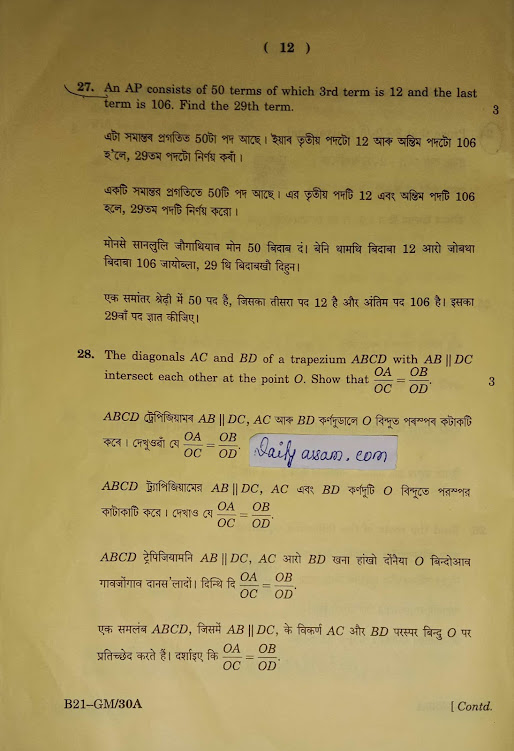 ( 12 )
27. An AP consists of 50 terms of which 3rd term is 12 and the last
term is 106. Find the 29th term.
3
এটা সমান্তৰ প্ৰগতিত 50টা পদ আছে। ইয়াৰ তৃতীয় পদটো 12 আৰু অন্তিম পদটো 106
হ'লে, 29তম পদটো নিৰ্ণয় কৰাঁ।
একটি সমান্তর প্রগতিতে 50টি পদ আছে। এর তৃতীয় পদটি 12 এবং অন্তিম পদটি 106
হলে, 29তম পদটি নির্ণয় করো।
मोनसे सानलुलि जौगाथियाव मोन 50 बिदाब दं। बेनि थामथि बिदाबा 12 आरो जोबथा
बिदाबा 106 जायोब्ला, 29 थि बिदाबखौ दिहुन।
एक समांतर श्रेढ़ी में 50 पद है, जिसका तीसरा पद 12 है और अंतिम पद 106 है। इसका
29वाँ पद ज्ञात कीजिए।
28. The diagonals AC and BD of a trapezium ABCD with AB || DC
intersect each other at the point O. Show that OA/OC = OB/OD.
3
ABCD ট্ৰেপিজিয়ামৰ AB || DC, AC আৰু BD কৰ্ণদুডালে O বিন্দুত পৰস্পৰ কটাকটি
কৰে। দেখুওৱাঁ যে OA/OC = OB/OD.
Daily assam.com
ABCD ট্র্যাপিজিয়ামের AB || DC, AC এবং BD কর্ণদুটি O বিন্দুতে পরস্পর
কাটাকাটি করে। দেখাও যে OA/OC = OB/OD.
ABCD ट्रेपिजियामनि AB || DC, AC आरो BD खना हांखो दोंनैया O बिन्दोआव
गावजोंगाव दानस'लादों। दिन्थि दि OA/OC = OB/OD.
एक समलंब ABCD, जिसमें AB || DC, के विकर्ण AC और BD परस्पर बिन्दु O पर
प्रतिच्छेद करते हैं। दर्शाइए कि OA/OC = OB/OD.
B21–GM/30A
[ Contd.